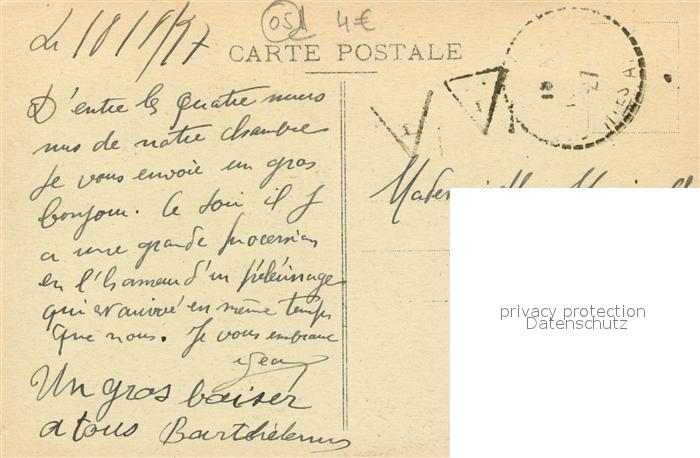 051 4€
Le 18/8/27
CARTE POSTALE
D'entre les quatre murs
nus de notre chambre
je vous envoie un gros
bonjour. Ce soir il y
a une grande procession
en l'honneur d'un pélerinage
qui est arrivé en même temps
que nous. Je vous embrasse
Jean
Un gros baiser
a tous Barthélemy
T
T
18
27
LES A
Mademoiselle
privacy protection
Datenschutz